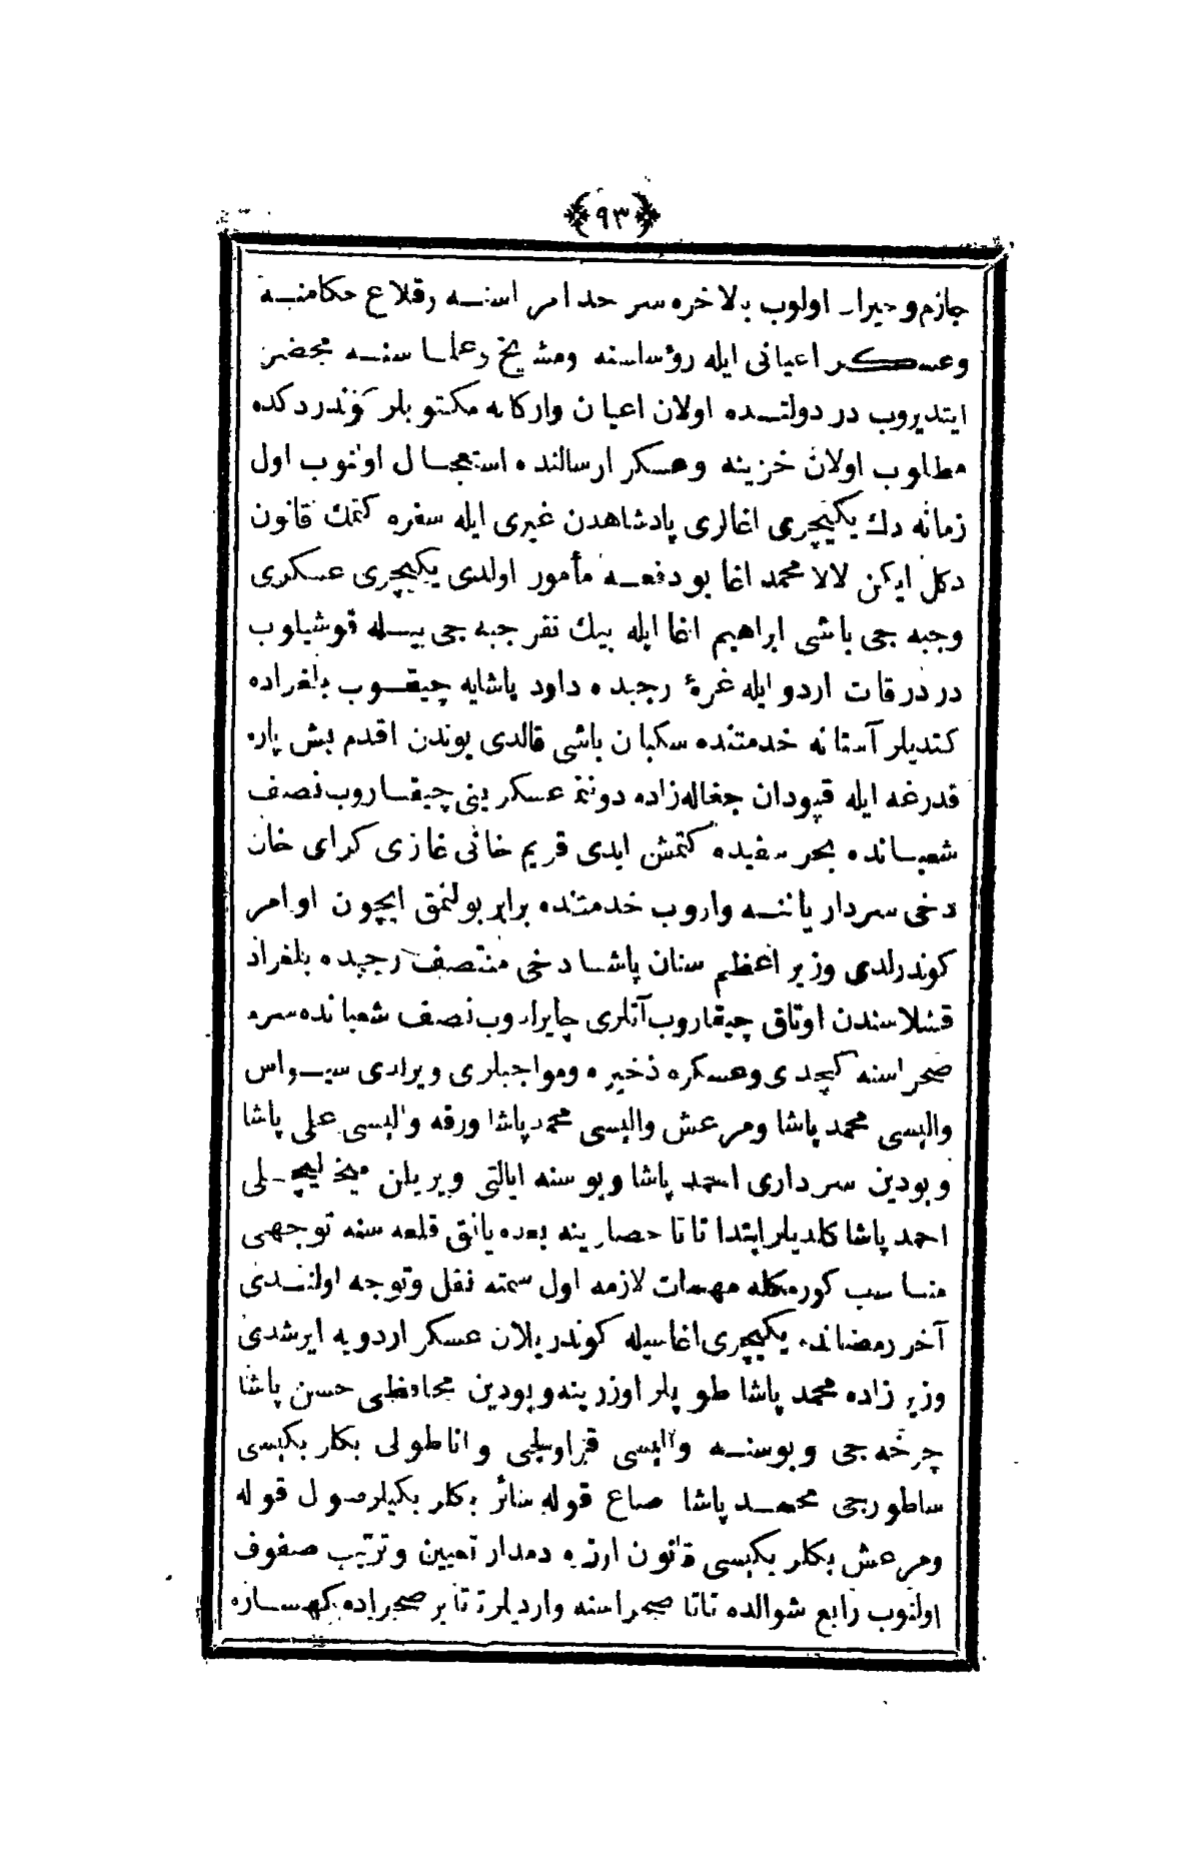 ﴿٩٣﴾
جازم و حیران اولوب بالاخره سر حد امر اسنه وقلاع حکامنه
وعسکر اعیانی ایله رؤساسنه ومشایخ وعلما سنه محضر
ایتدیروب در دولتده اولان اعیان وارکانه مکتوبلر کوندردکده
مطلوب اولان خزینه وعسکر ارسالنده استعجال اولنوب اول
زمانه دك یکیچری اغالری پادشاهدن غیری ایله سفره کتمك قانون
دکل ایکن لالا محمد اغا بو دفعه مأمور اولدی یکیچری عسکری
وجبه جی باشی ابراهیم اغا ایله بیك نفر جبه جی بیله قوشیلوب
در درقات اردو ایله غرۀ رجبده داود پاشایه چیقوب بلغراده
کتدیلر آستانه خدمتنده سکبان باشی قالدی بوندن اقدم بش پاره
قدرغه ایله قپودان جغاله‌زاده دوننما عسکرینی چیقاروب نصف
شعبانده بحر سفیده کتمش ایدی قریم خانی غازی کرای خان
دخی سردار یاننه واروب خدمتنده برابر بولنمق ایچون اوامر
کوندرلدی وزیر اعظم سنان پاشا دخی منتصف رجبده بلغراد
قشلاسندن اوتاق چیقاروب آتلری چایرلدوب نصف شعبانده سرم
صحراسنه کچدی وعسکره ذخیره ومواجبلری ویرلدی سیواس
والیسی محمد پاشا ومرعش والیسی محمد پاشا ورقه والیسی علی پاشا
و بودین سرداری احمد پاشا وبوسنه ایالتی ویریلن میخالیچلی
احمد پاشا کلدیلر ابتدا تاتا حصارینه بعده یانق قلعه سنه توجهی
مناسب کورمکله مهمات لازمه اول سمته نقل وتوجه اولندی
آخر رمضانده یکیچری اغاسیله کوندریلان عسکر اردویه ایرشدی
وزیر زاده محمد پاشا طوپلر اوزرینه و بودین محافظی حسن پاشا
چرخه جی و بوسنه والیسی قراولجی و اناطولی بکلر بکیسی
ساطورجی محمد پاشا صاغ قوله سائر بکلر بکیلر صول قوله
ومرعش بکلر بکیسی قانون اوزره دمدار تعیین وترتیب صفوف
اولنوب رابع شوالده تاتا صحراسنه واردیلر تاتار صحراده کهساره